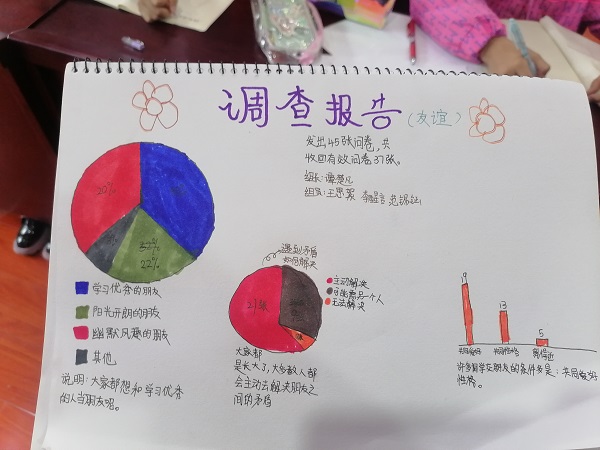 调查报告(友谊)
发出45张问卷,共
收回有效问卷37张。
组长:
组员:王思
20%
32%
22%
学习优秀的朋友
阳光开朗的朋友
幽默风趣的朋友
其他
说明:大家都想和学习优秀
的人当朋友呢。
遇到矛盾
如何解决
主动解决
无法解决
大家都
是长大了,大多数人都
会主动去解决朋友之
间的矛盾
13
5
共同爱好
许多同学交朋友的条件多是:共同爱好
性格。